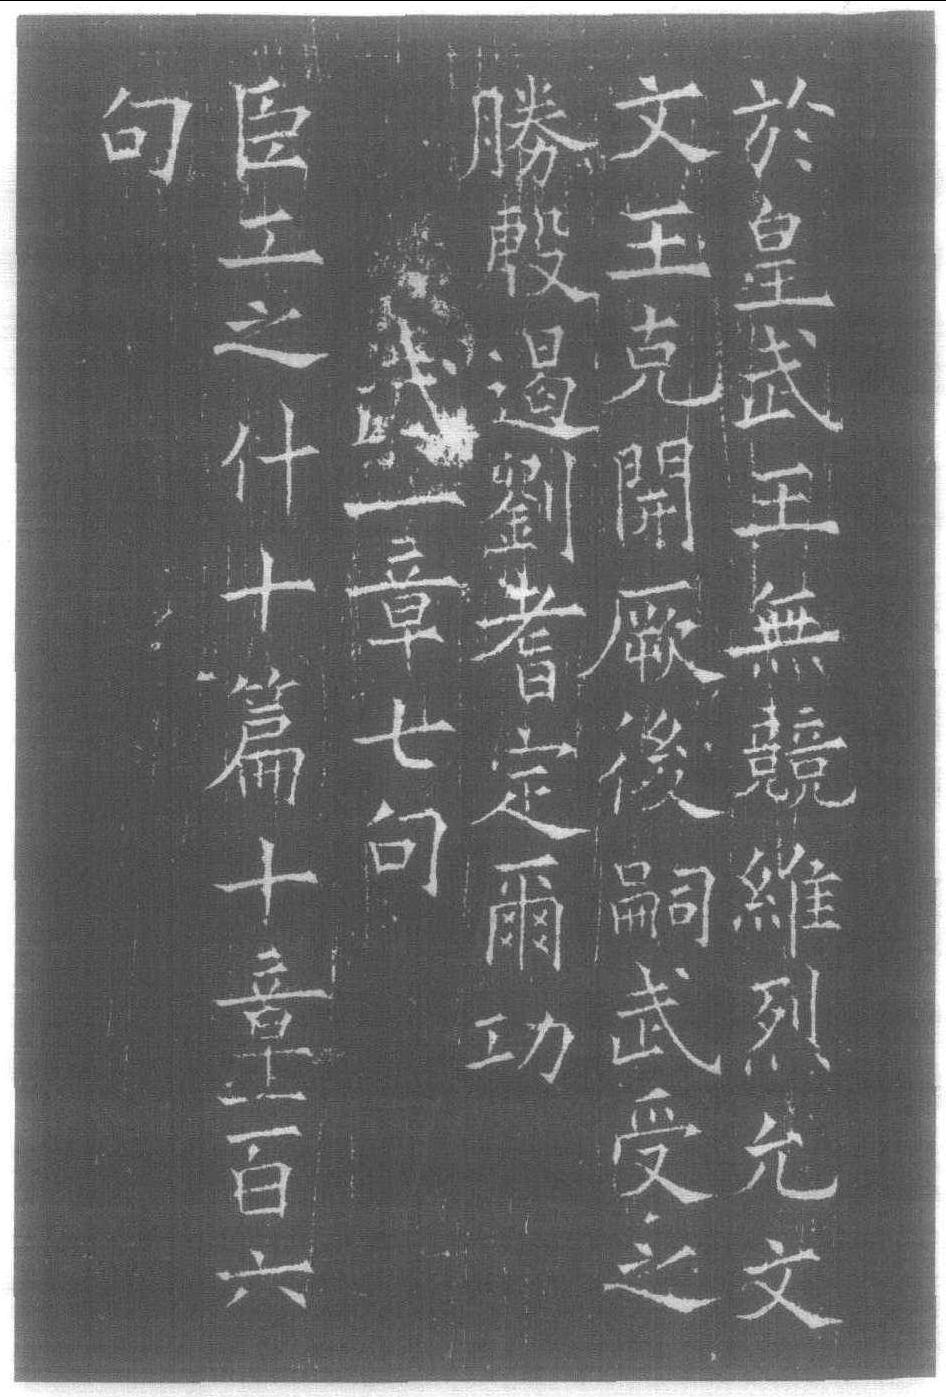 於皇武王無競維烈允文
文王克開厥後嗣武受之
勝殷遏劉耆定爾功
武一章七句
臣工之什十篇十章一百六
句